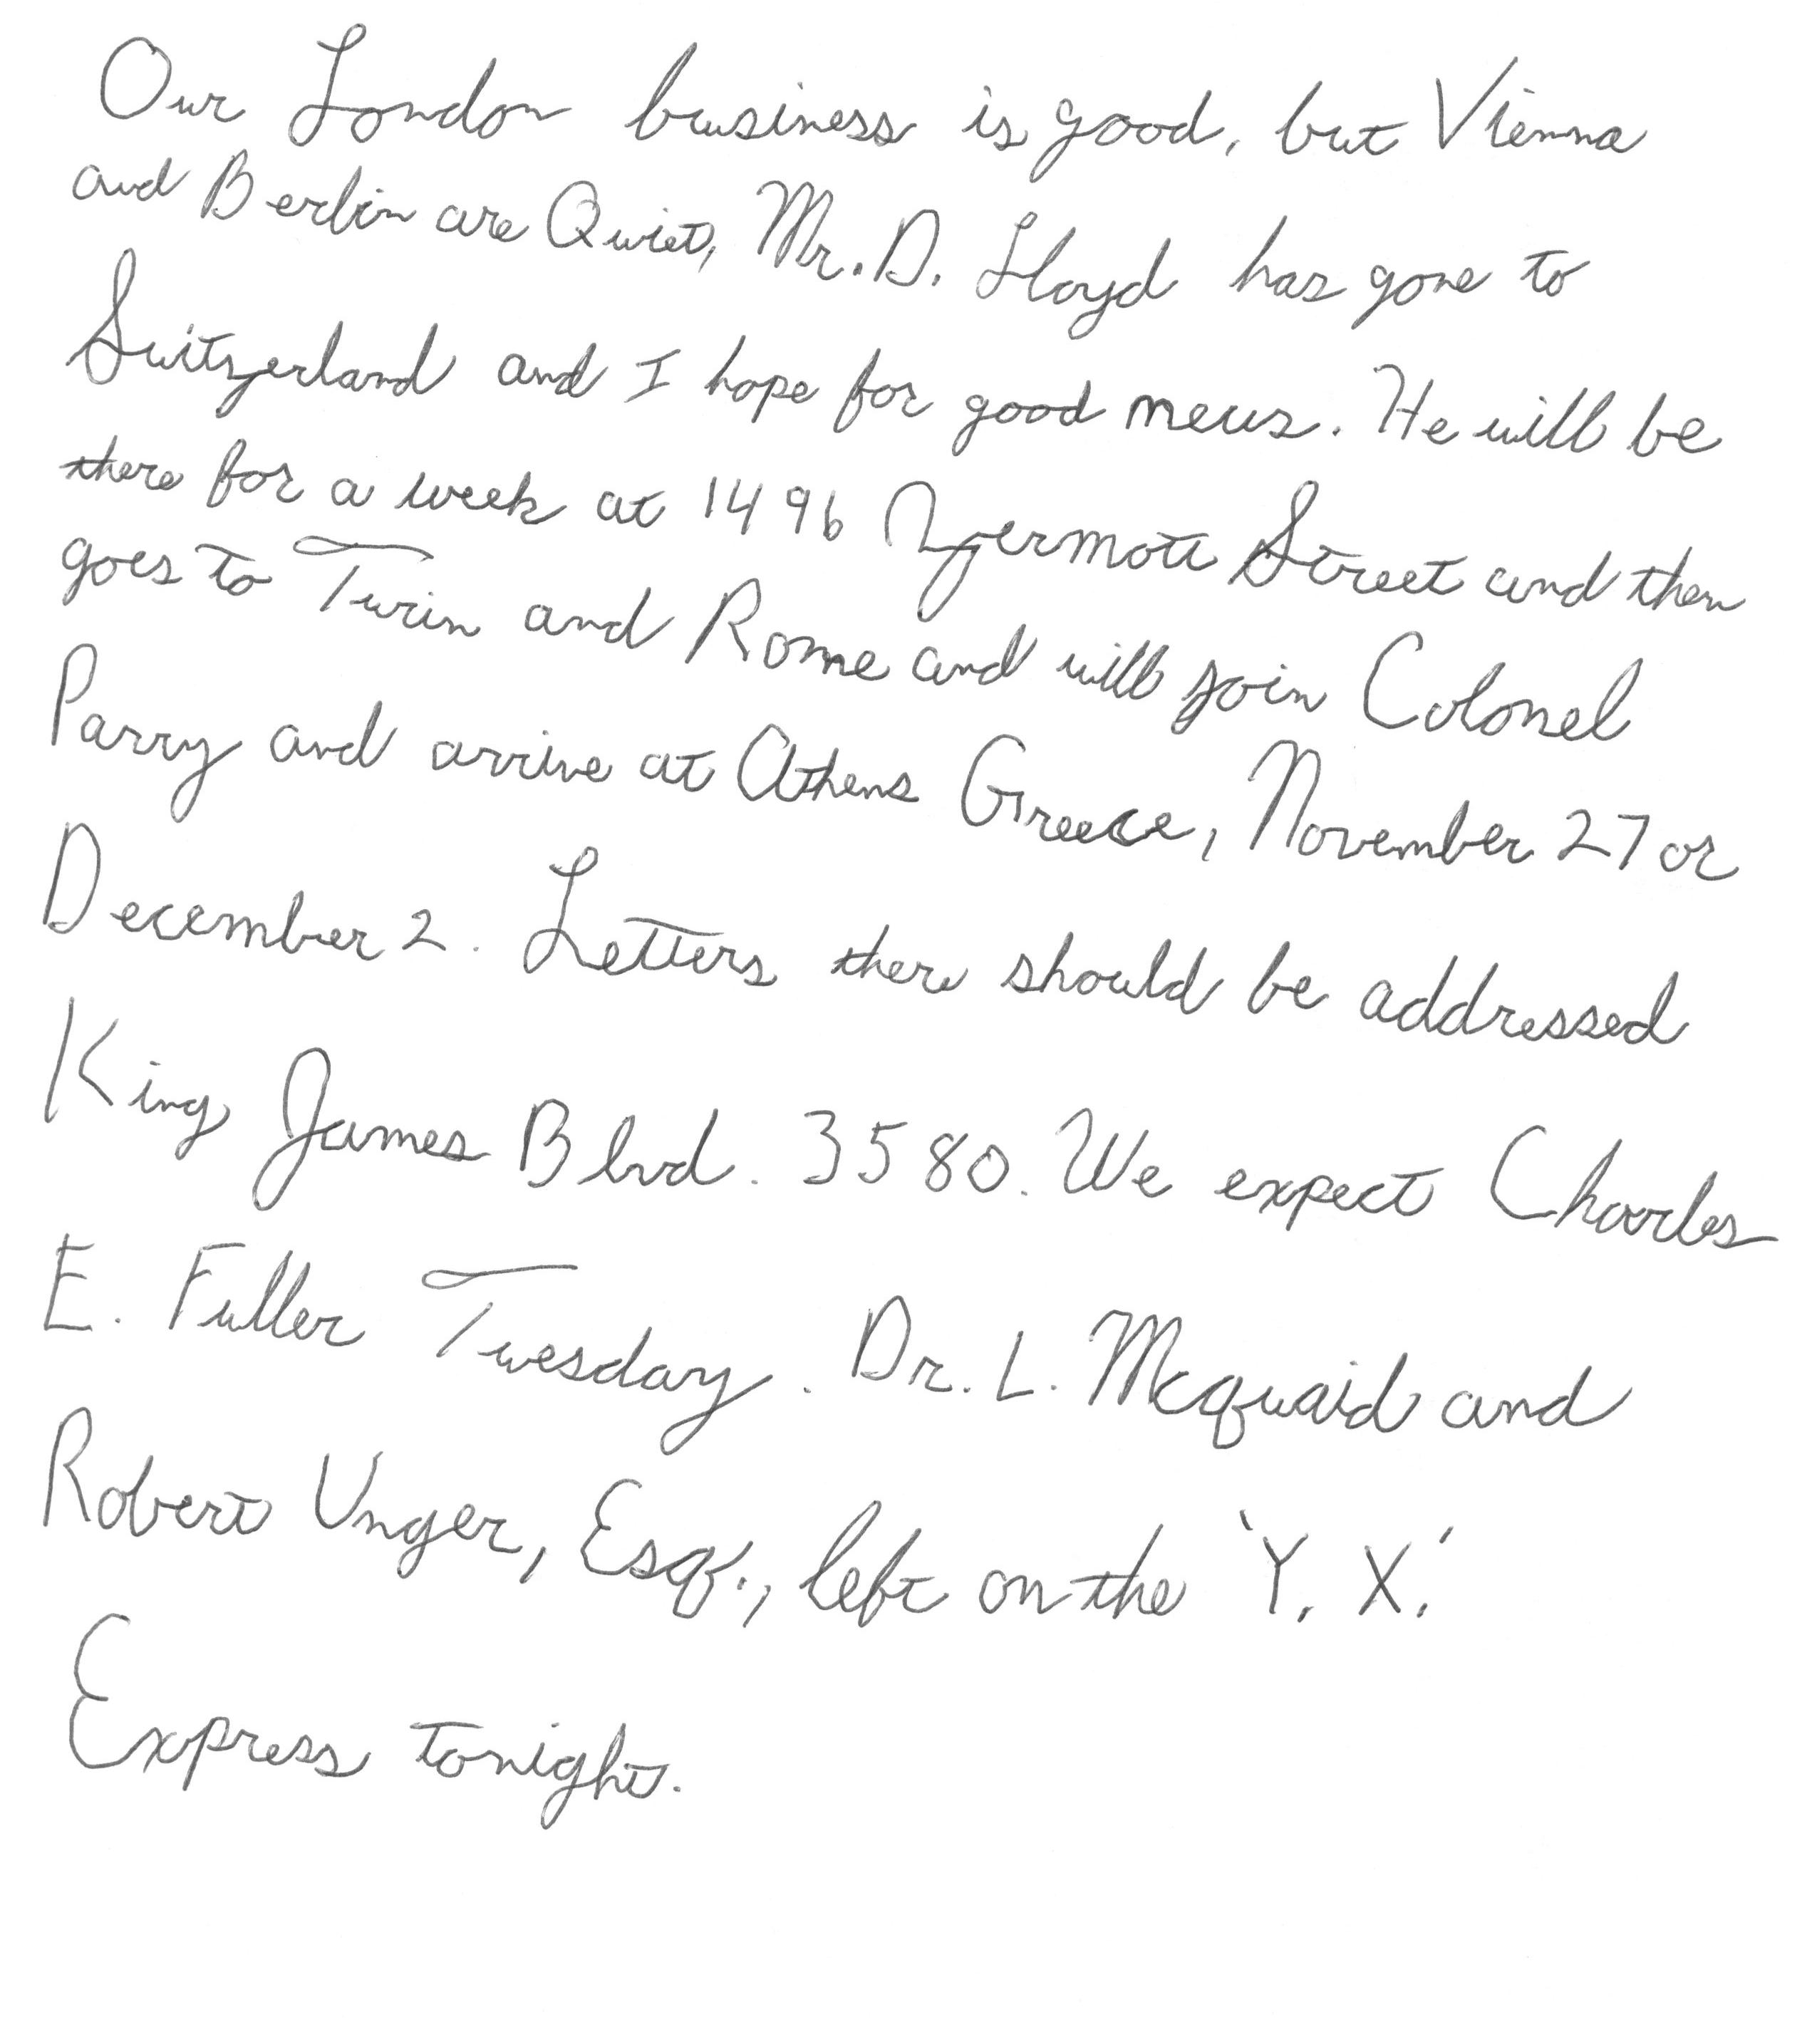 Our London business is good, but Vienna
and Berlin are Quiet, Mr. D. Lloyd has gone to
Switzerland and I hope for good news. He will be
there for a week at 1496 Zermott Street and then
goes to Turin and Rome and will join Colonel
Parry and arrive at Athens Greece, November 27 or
December 2. Letters there should be addressed
King James Blvd. 3580. We expect Charles
E. Fuller Tuesday. Dr. L. Mcquaid and
Robert Unger, Esq'., left on the 'Y. X.'
Express tonight.